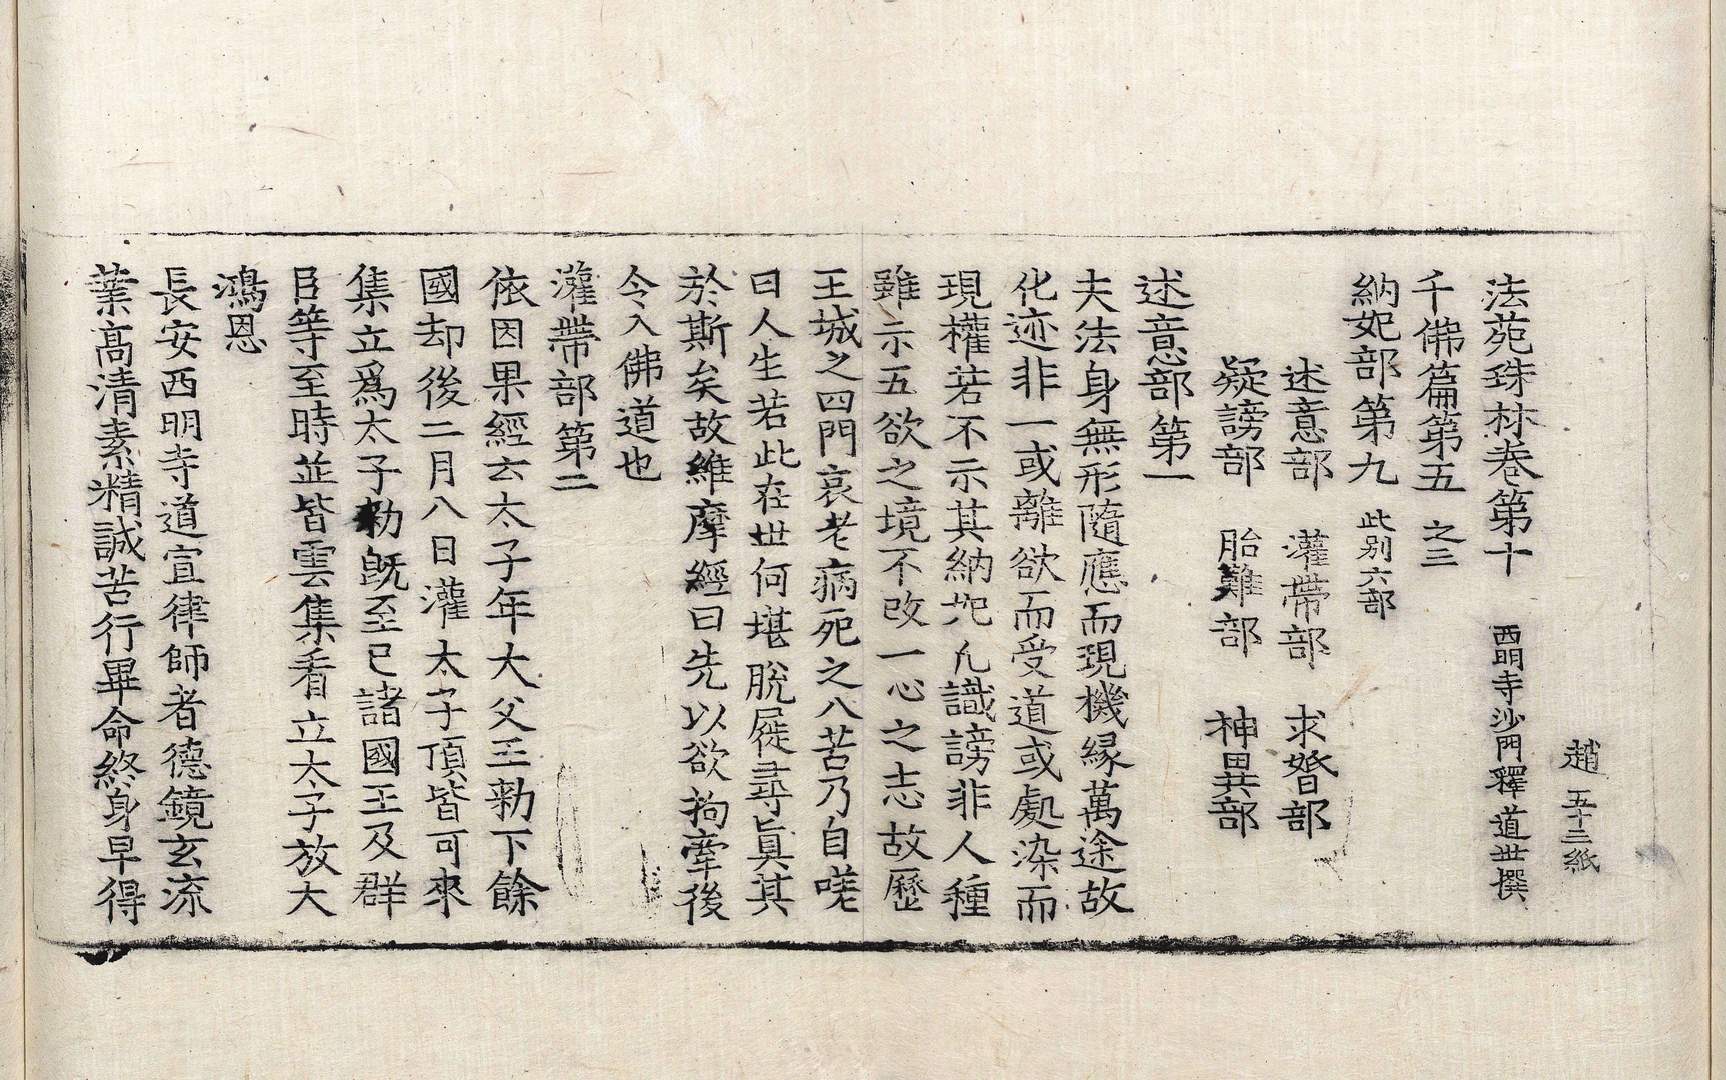 趙 五十三紙
法苑珠林卷第十 西明寺沙門釋道世撰
千佛篇第五之三
納妃部第九 此别六部
述意部 灌帶部 求婚部
疑謗部 胎難部 神異部
述意部第一
夫法身無形隨應而現機縁萬途故
化迹非一或離欲而受道或處染而
現權若不示其納妃凡識謗非人種
雖示五欲之境不改一心之志故歷
王城之四門哀老病死之八苦乃自嗟
曰人生若此在世何堪脫屣尋眞其
於斯矣故維摩經曰先以欲拘牽後
令入佛道也
灌帶部第二
依因果經云太子年大父王勑下餘
國却後二月八日灌太子頂皆可來
集立爲太子勑旣至已諸國王及群
臣等至時並皆雲集看立太子放大
鴻恩
長安西明寺道宣律師者德鏡玄流
業高清素精誠苦行畢命終身早得